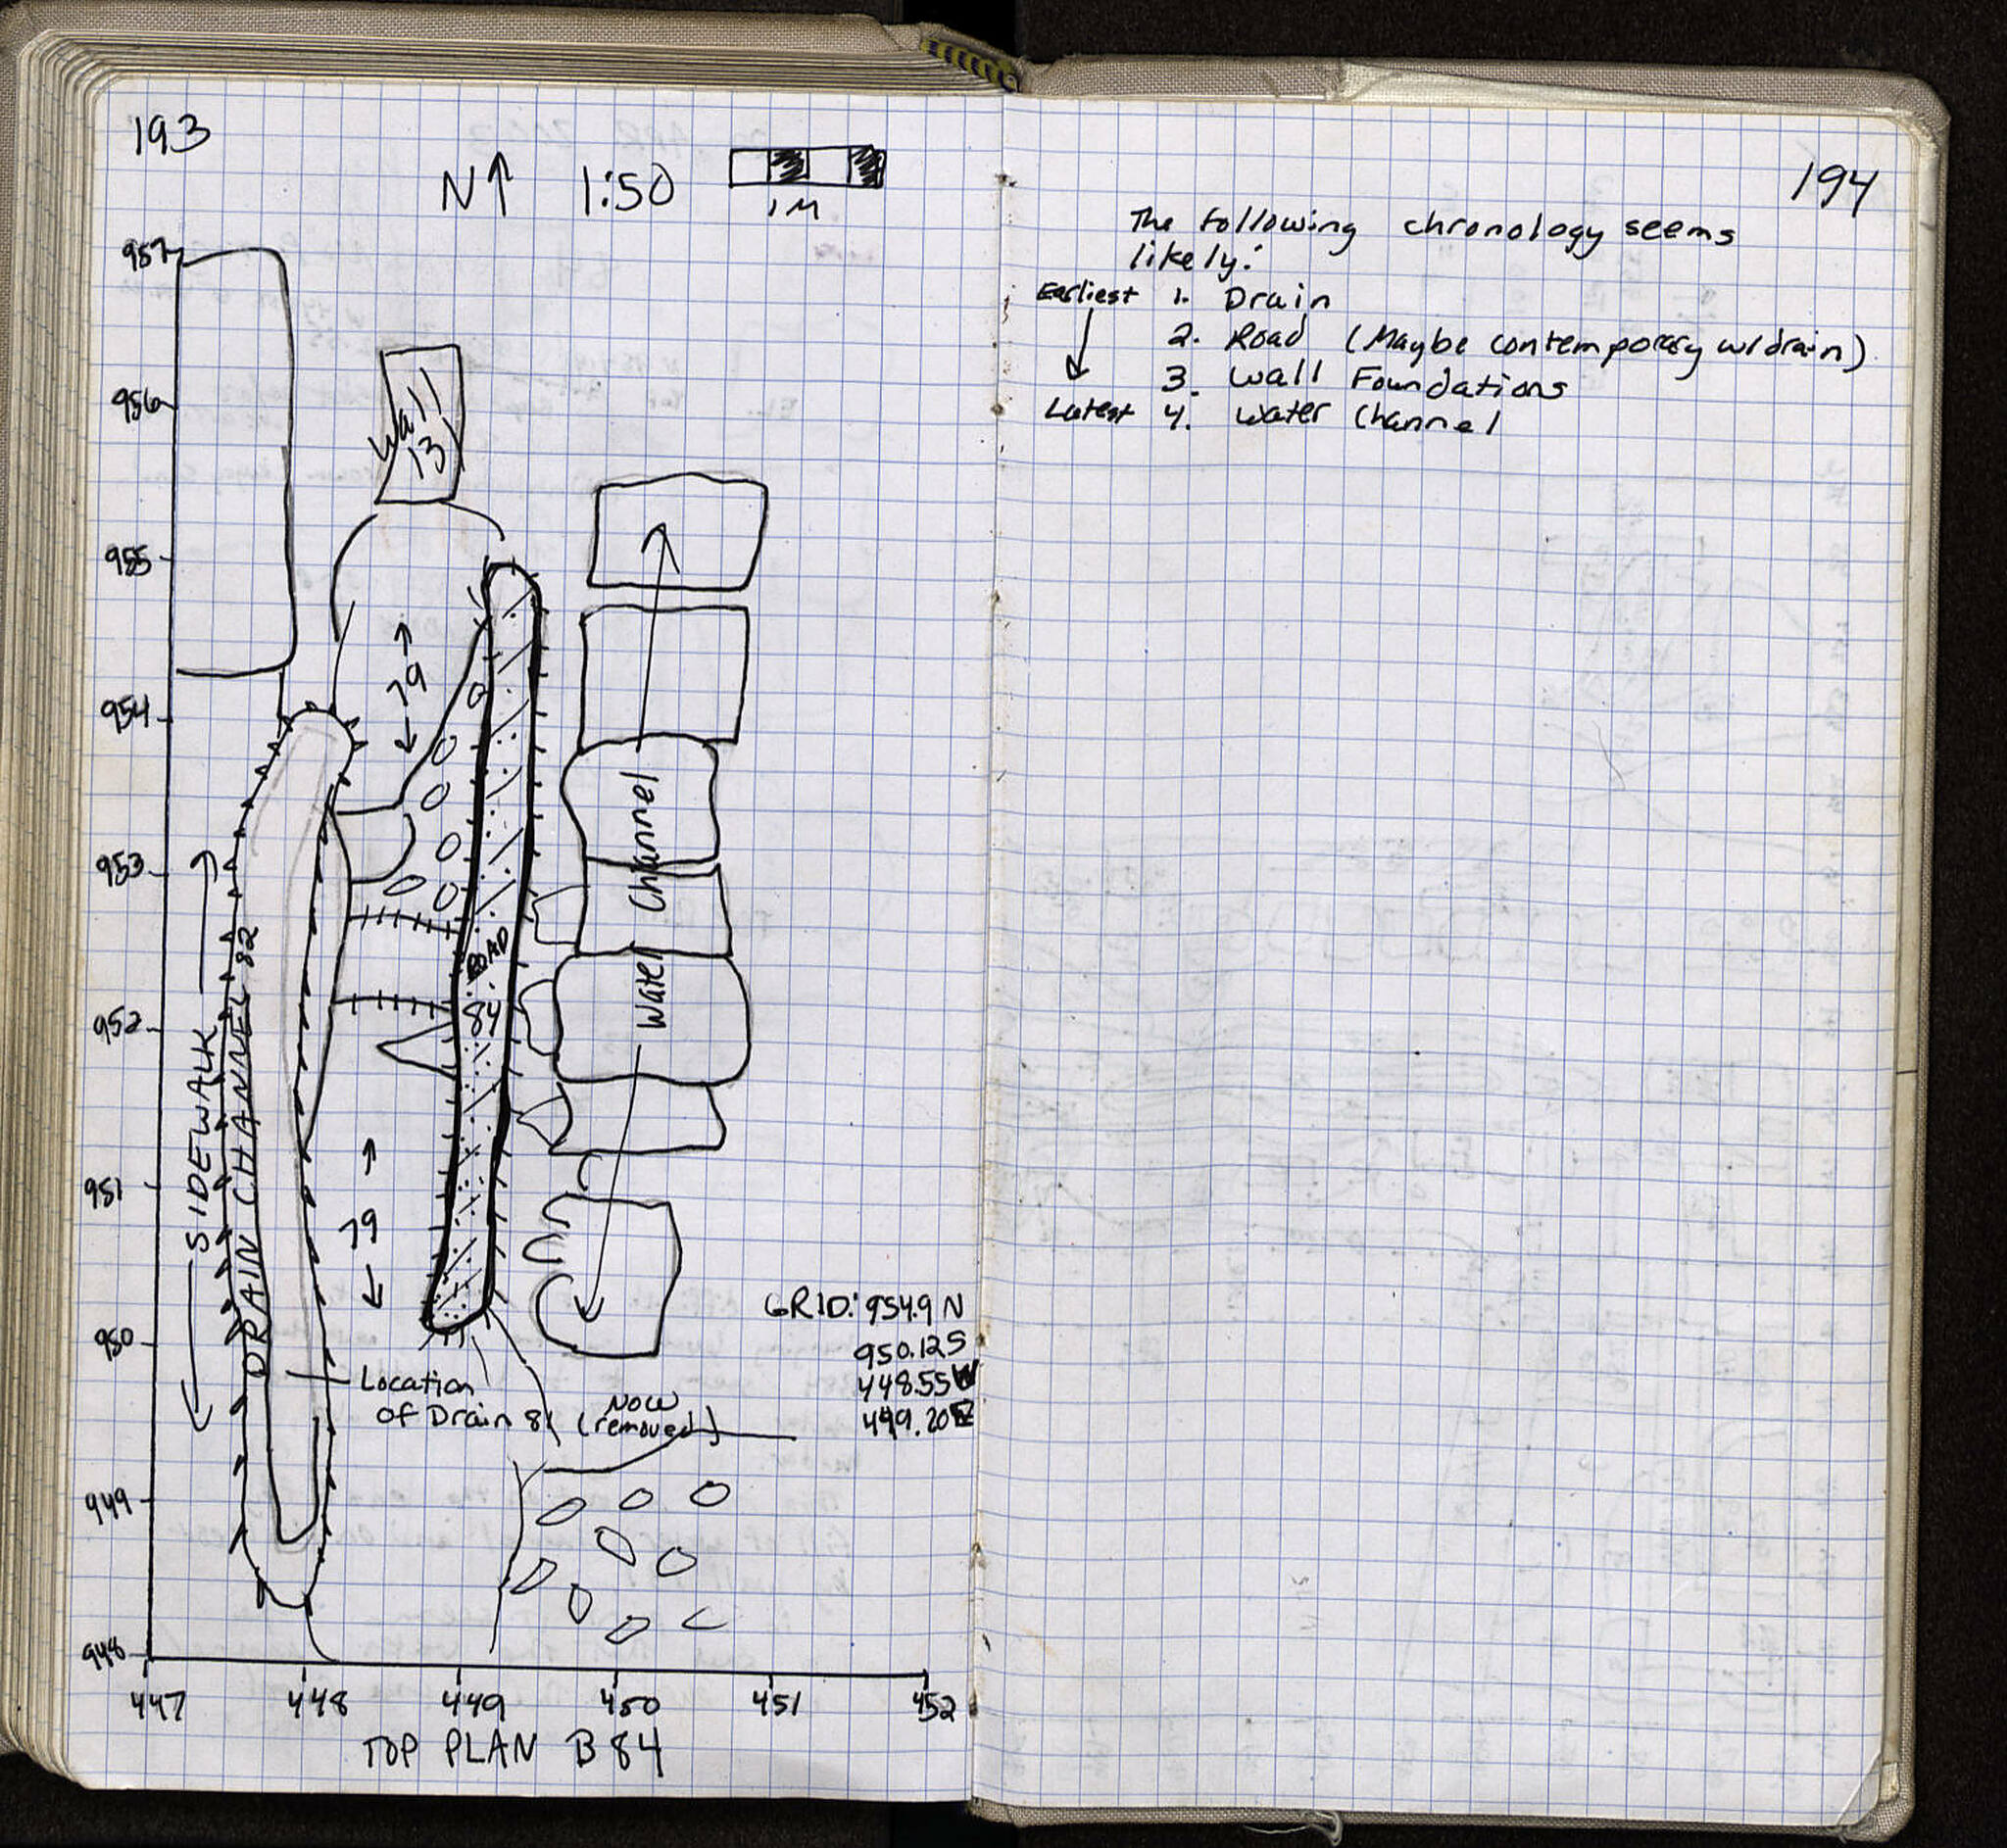 193
N↑ 1:50
1 M
957
956
955
954
953
952
951
950
949
948
447 448 449 450 451 452
Wall
13
79
Water Channel
ROAD
84
SIDEWALK
DRAIN CHANNEL 82
79
GRID: 954.9 N
950.12 S
448.55 W
449.20 E
Location
of Drain 81 (Now removed)
TOP PLAN B 84
194
The following chronology seems
likely:
Earliest 1. Drain
2. Road (Maybe contemporary w/drain)
3. Wall Foundations
Latest 4. Water Channel